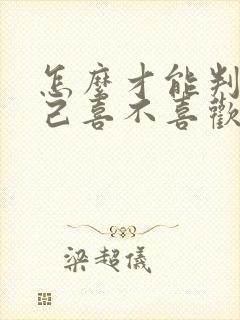 怎麼才能判
己喜不喜歡
梁超儀